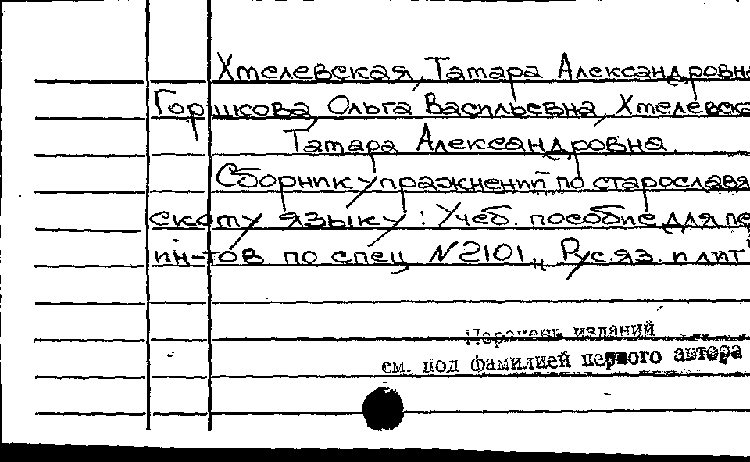 Хмелевская, Татара Александровна
Горшкова, Ольга Васильевна, Хмелевска
Татара Александровна.
Сборник упражнений по старославя
скому языку : Учеб. пособие для пе
ин-тов по спец. N 2101 „Рус.яз. и лит"
Перечень изданий
см. под фамилией первого автора